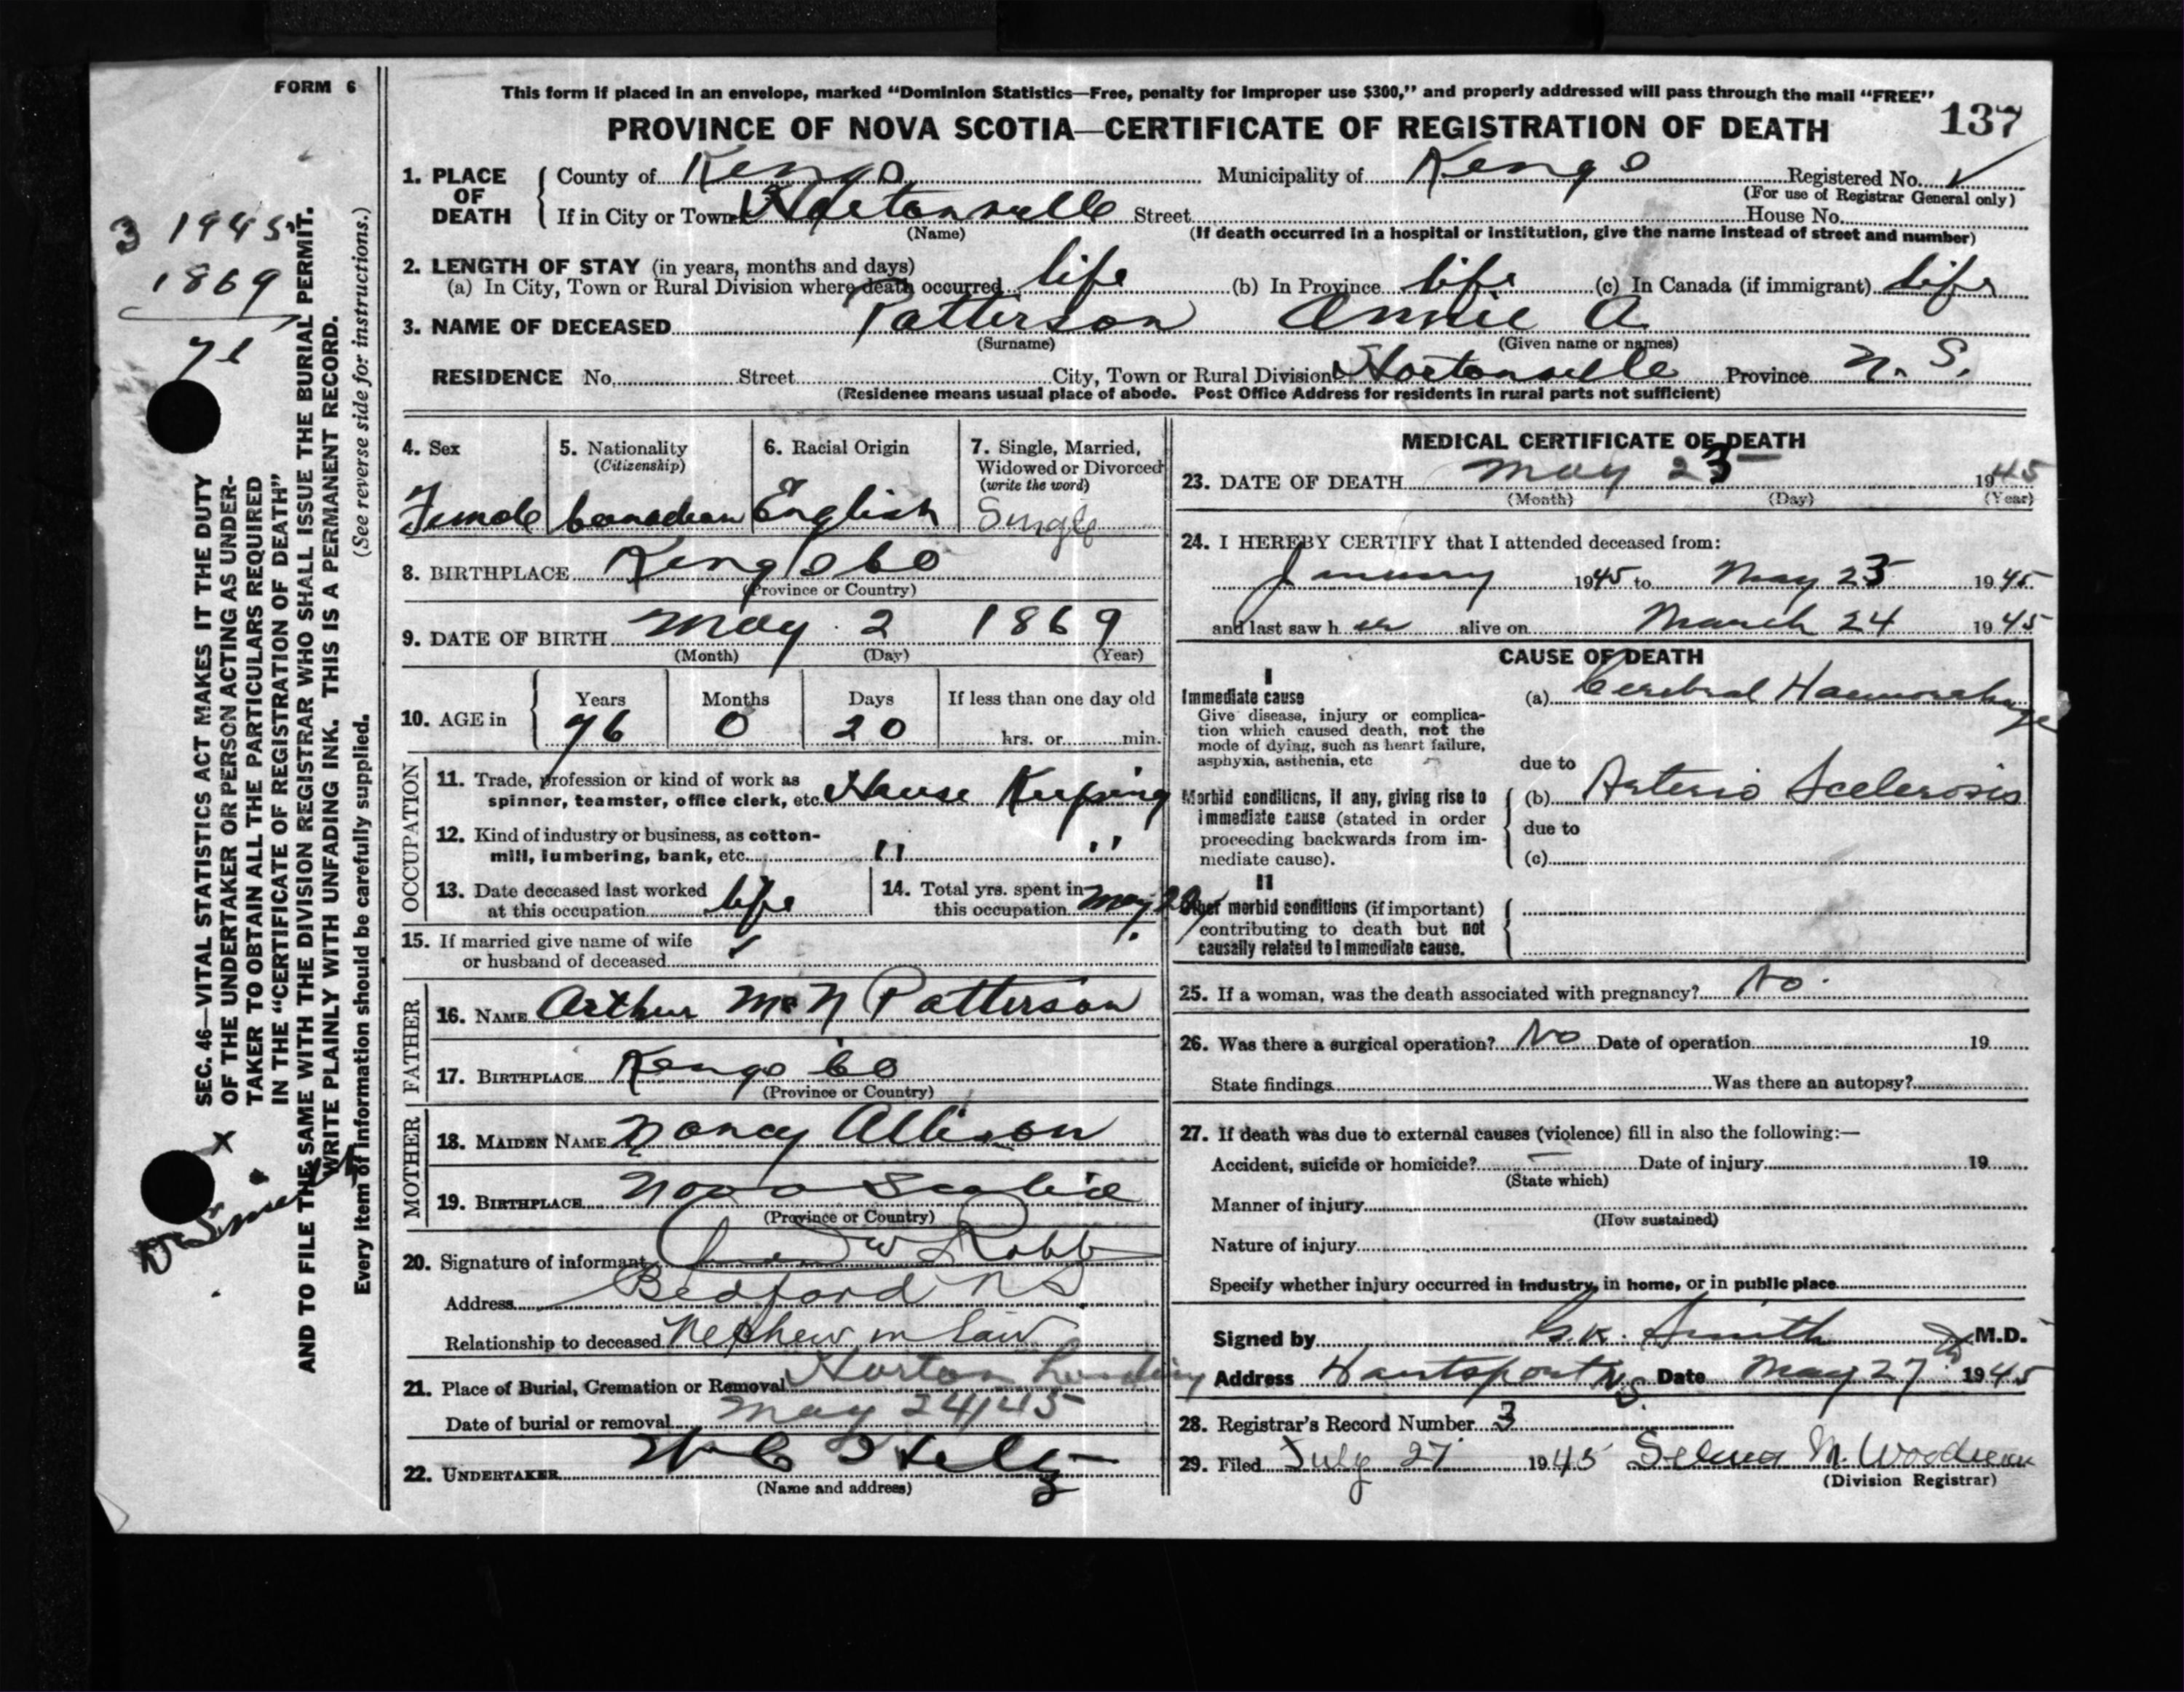 FORM 6
This form if placed in an envelope, marked "Dominion Statistics—Free, penalty for improper use $300," and properly addressed will pass through the mail "FREE"
PROVINCE OF NOVA SCOTIA—CERTIFICATE OF REGISTRATION OF DEATH 137
1. PLACE OF DEATH County of Kings Municipality of Kings Registered No.
(For use of Registrar General only)
If in City or Town Hortonville Street House No.
(Name) (If death occurred in a hospital or institution, give the name instead of street and number)
2. LENGTH OF STAY (in years, months and days)
(a) In City, Town or Rural Division where death occurred life (b) In Province life (c) In Canada (if immigrant) life
3. NAME OF DECEASED Patterson Annie A.
(Surname) (Given name or names)
RESIDENCE No. Street City, Town or Rural Division Hortonville Province N. S.
(Residence means usual place of abode. Post Office Address for residents in rural parts not sufficient)
3 1945
1869
SEC. 46—VITAL STATISTICS ACT MAKES IT THE DUTY
OF THE UNDERTAKER OR PERSON ACTING AS UNDER-
TAKER TO OBTAIN ALL THE PARTICULARS REQUIRED
IN THE "CERTIFICATE OF REGISTRATION OF DEATH"
AND TO FILE THE SAME WITH THE DIVISION REGISTRAR WHO SHALL ISSUE THE BURIAL PERMIT.
WRITE PLAINLY WITH UNFADING INK. THIS IS A PERMANENT RECORD.
Every item of information should be carefully supplied. (See reverse side for instructions.)
X
4. Sex
Female
5. Nationality
(Citizenship)
Canadian
6. Racial Origin
English
7. Single, Married,
Widowed or Divorced
(write the word)
Single
8. BIRTHPLACE Kings Co
(Province or Country)
9. DATE OF BIRTH May 2 1869
(Month) (Day) (Year)
10. AGE in Years Months Days If less than one day old
76 0 20 hrs. or min.
OCCUPATION
11. Trade, profession or kind of work as
spinner, teamster, office clerk, etc. House Keeping
12. Kind of industry or business, as cotton-
mill, lumbering, bank, etc. " "
13. Date deceased last worked
at this occupation life
14. Total yrs. spent in
this occupation May
15. If married give name of wife
or husband of deceased
FATHER
16. NAME Arthur McN Patterson
17. BIRTHPLACE Kings Co
(Province or Country)
MOTHER
18. MAIDEN NAME Nancy Allison
19. BIRTHPLACE Nova Scotia
(Province or Country)
20. Signature of informant W Robb
Address Bedford NS
Relationship to deceased Nephew in law
21. Place of Burial, Cremation or Removal Horton Landing
Date of burial or removal May 24/45
22. UNDERTAKER
(Name and address)
MEDICAL CERTIFICATE OF DEATH
23. DATE OF DEATH May 23 1945
(Month) (Day) (Year)
24. I HEREBY CERTIFY that I attended deceased from:
January 1945 to May 23 1945
and last saw h er alive on March 24 1945
CAUSE OF DEATH
I
Immediate cause
Give disease, injury or complica-
tion which caused death, not the
mode of dying, such as heart failure,
asphyxia, asthenia, etc
(a) Cerebral Haemorrhage
due to
Morbid conditions, if any, giving rise to
immediate cause (stated in order
proceeding backwards from im-
mediate cause).
(b) Arterio Scelerosis
due to
(c)
II
Other morbid conditions (if important)
contributing to death but not
causally related to immediate cause.
25. If a woman, was the death associated with pregnancy? No.
26. Was there a surgical operation? No Date of operation 19
State findings Was there an autopsy?
27. If death was due to external causes (violence) fill in also the following:—
Accident, suicide or homicide? — Date of injury 19
(State which)
Manner of injury
(How sustained)
Nature of injury
Specify whether injury occurred in industry, in home, or in public place
Signed by Smith M.D.
Address Hantsport N.S. Date May 27 1945
28. Registrar's Record Number 3
29. Filed July 27 1945 Selma M. Woodman
(Division Registrar)